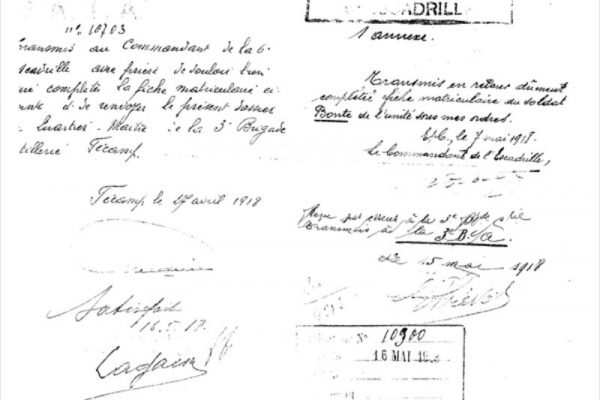 n° 10703
transmis au Commandant de la 6
escadrille avec prière de vouloir bien
compléter la fiche matriculaire ci
et de renvoyer le présent dossier
Quartier-Maitre de la 3e Brigade
tillerie Fécamp.
Fécamp le 17 avril 1918
Satisfait
16.5.18
ESCADRILL
1 annexe.
Transmis en retour dûment
complétée fiche matriculaire du soldat
Bonte de l'unité sous mes ordres.
le 7 mai 1918.
Le Commandant de l'Escadrille,
par erreur à la 3e
Transmis à la 3e B./A.
Le 15 mai 1918
N° 10900
16 MAI